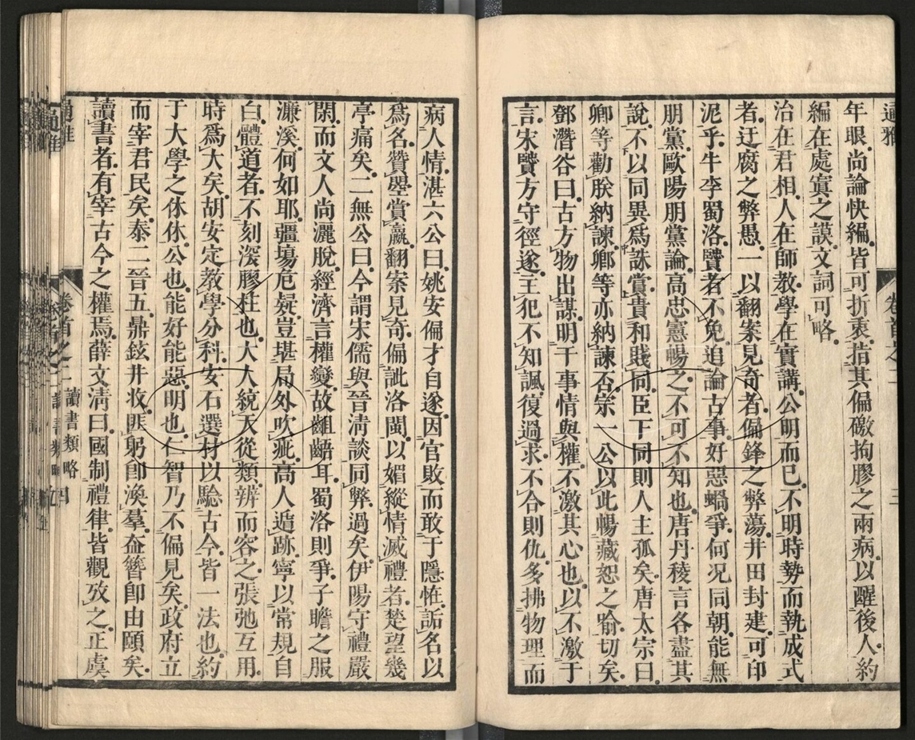 通雅
卷首之二
三
年眼尚論快編皆可折衷指其偏礉拘膠之兩病以醒後人約
編在處寘之謨文詞可略
治在君相人在師教學在實講公明而已不明時勢而執成式
者迂腐之弊愚一以翻案見奇者偏鋒之弊蕩井田封建可印
泥乎牛李蜀洛贒者不免追論古事好惡蝸爭何况同朝能無
朋黨歐陽朋黨論高忠憲暢之不可不知也唐丹稜言各盡其
說不以同異爲誅賞貴和賤同臣下同則人主孤矣唐太宗曰
卿等勸朕納諫卿等亦納諫否宗一公以此暢藏恕之喻切矣
鄧潛谷曰古方物出謀明于事情與權不激其心也以不激于
言宋贒方守徑遂主犯不知諷復過求不合則仇多拂物理而
病人情湛六公曰姚安偏才自遂因官敗而敢于隱恠詬名以
爲名贊瞾賞嬴翻案見奇偏訿洛閩以媚縱情滅禮者楚望幾
亭痛矣一無公曰今謂宋儒與晉淸談同弊過矣伊陽守禮嚴
閑而文人尚灑脫經濟言權變故齟齬耳蜀洛則爭子瞻之服
濂溪何如耶疆場危㠜豈堪局外吹疵高人遁跡寧以常規自
白體道者不刻深膠柱也大人統天從類辨而容之張弛互用
時爲大矣胡安定教學分科安石選材以驗古今皆一法也約
于大學之休休公也能好能惡明也仁智乃不偏見矣政府立
而宰君民矣泰二晉五鼎鉉井收匪躬卽渙羣盍簪卽由頤矣
讀書者有宰古今之權焉薛文淸曰國制禮律皆觀攷之正虞
通雅
卷首之二
讀書類略
四